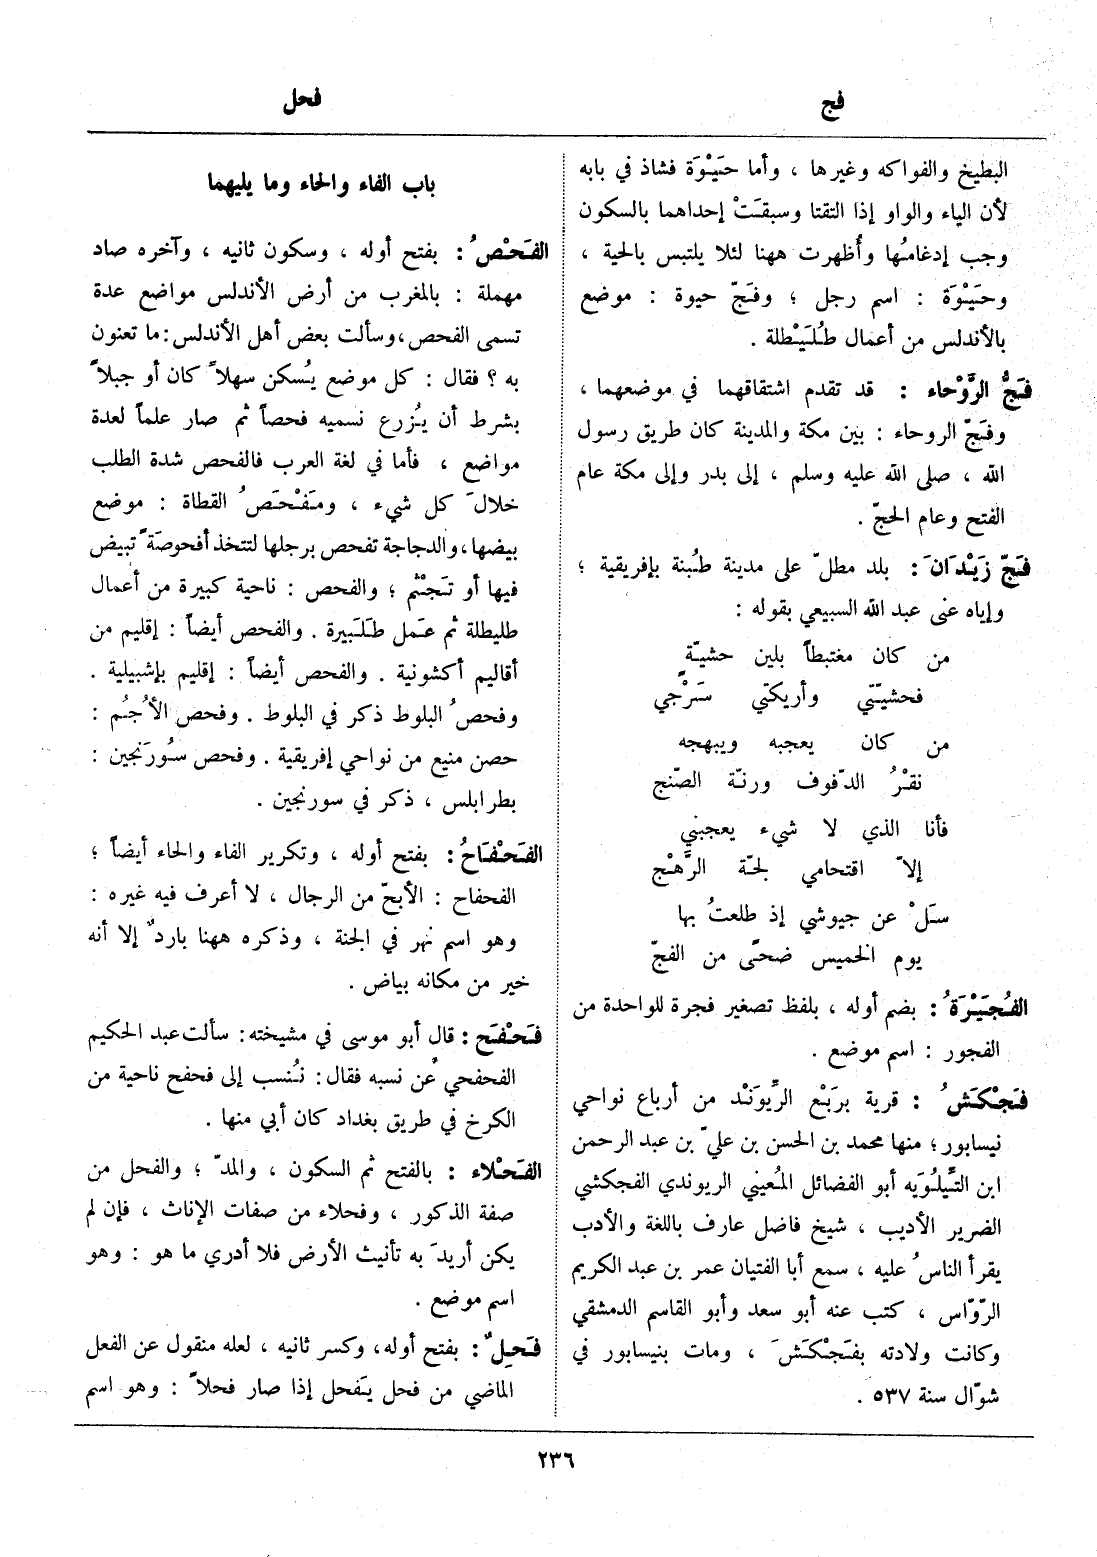 فج
فحل
البطيخ والفواكه وغيرها ، وأما حَيْوَة فشاذ في بابه
لأن الياء والواو إذا التقتا وسبقَتْ إحداهما بالسكون
وجب إدغامُها وأُظهرت ههنا لئلا يلتبس بالحية ،
وحَيْوَة : اسم رجل ؛ وفَجّ حيوة : موضع
بالأندلس من أعمال طُلَيْطلة .
فَجُّ الرَّوْحاء : قد تقدم اشتقاقهما في موضعهما ،
وفَجّ الروحاء : بين مكة والمدينة كان طريق رسول
الله ، صلى الله عليه وسلم ، إلى بدر وإلى مكة عام
الفتح وعام الحجّ .
فَجّ زَيْدَانَ : بلد مطلّ على مدينة طُبنة بإفريقية ؛
وإياه عنى عبد الله السبيعي بقوله :
من كان مغتبطاً بلين حشيّةٍ
فحشيّتي وأريكتي سَرْجي
من كان يعجبه ويبهجه
نقْرُ الدّفوف ورنّة الصّنج
فأنا الذي لا شيء يعجبني
إلاّ اقتحامي لجّة الرَّهْج
سَلْ عن جيوشي إذ طلعتُ بها
يوم الخميس ضحًى من الفجّ
الفُجَيْرَةُ : بضم أوله ، بلفظ تصغير فجرة للواحدة من
الفجور : اسم موضع .
فَجْكَشُ : قرية برَبْع الرِّيوَنْد من أرباع نواحي
نيسابور ؛ منها محمد بن الحسن بن عليّ بن عبد الرحمن
ابن التَّيلُوَيه أبو الفضائل المُعيني الريوندي الفجكشي
الضرير الأديب ، شيخ فاضل عارف باللغة والأدب
يقرأ الناسُ عليه ، سمع أبا الفتيان عمر بن عبد الكريم
الرّوّاس ، كتب عنه أبو سعد وأبو القاسم الدمشقي
وكانت ولادته بفَجْكَشَ ، ومات بنيسابور في
شوّال سنة ٥٣٧ .
باب الفاء والحاء وما يليهما
الفَحْصُ : بفتح أوله ، وسكون ثانيه ، وآخره صاد
مهملة : بالمغرب من أرض الأندلس مواضع عدة
تسمى الفحص ، وسألت بعض أهل الأندلس : ما تعنون
به ؟ فقال : كل موضع يُسكن سهلاً كان أو جبلاً
بشرط أن يُزرع نسميه فحصاً ثم صار علماً لعدة
مواضع ، فأما في لغة العرب فالفحص شدة الطلب
خلالَ كل شيء ، ومَفْحَصُ القطاة : موضع
بيضها ، والدجاجة تفحص برجلها لتتخذ أفحوصَةً تبيض
فيها أو تَجْثُم ؛ والفحص : ناحية كبيرة من أعمال
طليطلة ثم عَمل طَلَبيرة . والفحص أيضاً : إقليم من
أقاليم أكشونية . والفحص أيضاً : إقليم بإشبيلية .
وفحصُ البلوط ذكر في البلوط . وفحص الأُجُم :
حصن منيع من نواحي إفريقية . وفحص سُورَنجين :
بطرابلس ، ذكر في سورنجين .
الفَحْفَاحُ : بفتح أوله ، وتكرير الفاء والحاء أيضاً ؛
الفحفاح : الأبحّ من الرجال ، لا أعرف فيه غيره :
وهو اسم نهر في الجنة ، وذكره ههنا باردٌ إلا أنه
خير من مكانه بياض .
فَحْفَح : قال أبو موسى في مشيخته : سألت عبد الحكيم
الفحفحي عن نسبه فقال : نُنسب إلى فحفح ناحية من
الكرخ في طريق بغداد كان أبي منها .
الفَحْلاء : بالفتح ثم السكون ، والمدّ ؛ والفحل من
صفة الذكور ، وفحلاء من صفات الإناث ، فإن لم
يكن أريدَ به تأنيث الأرض فلا أدري ما هو : وهو
اسم موضع .
فَحِلٌ : بفتح أوله ، وكسر ثانيه ، لعله منقول عن الفعل
الماضي من فحل يَفحل إذا صار فحلاً : وهو اسم
٢٣٦